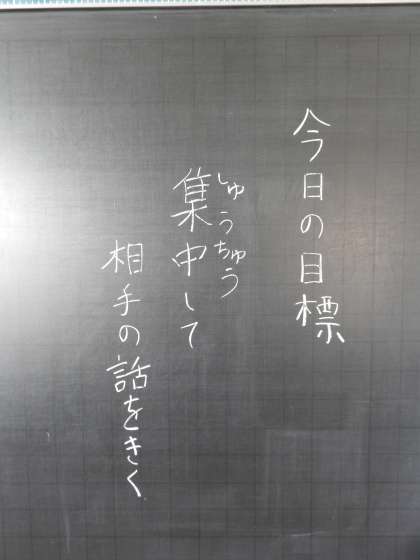 今日の目標
しゅうちゅう
集中して
相手の話をきく